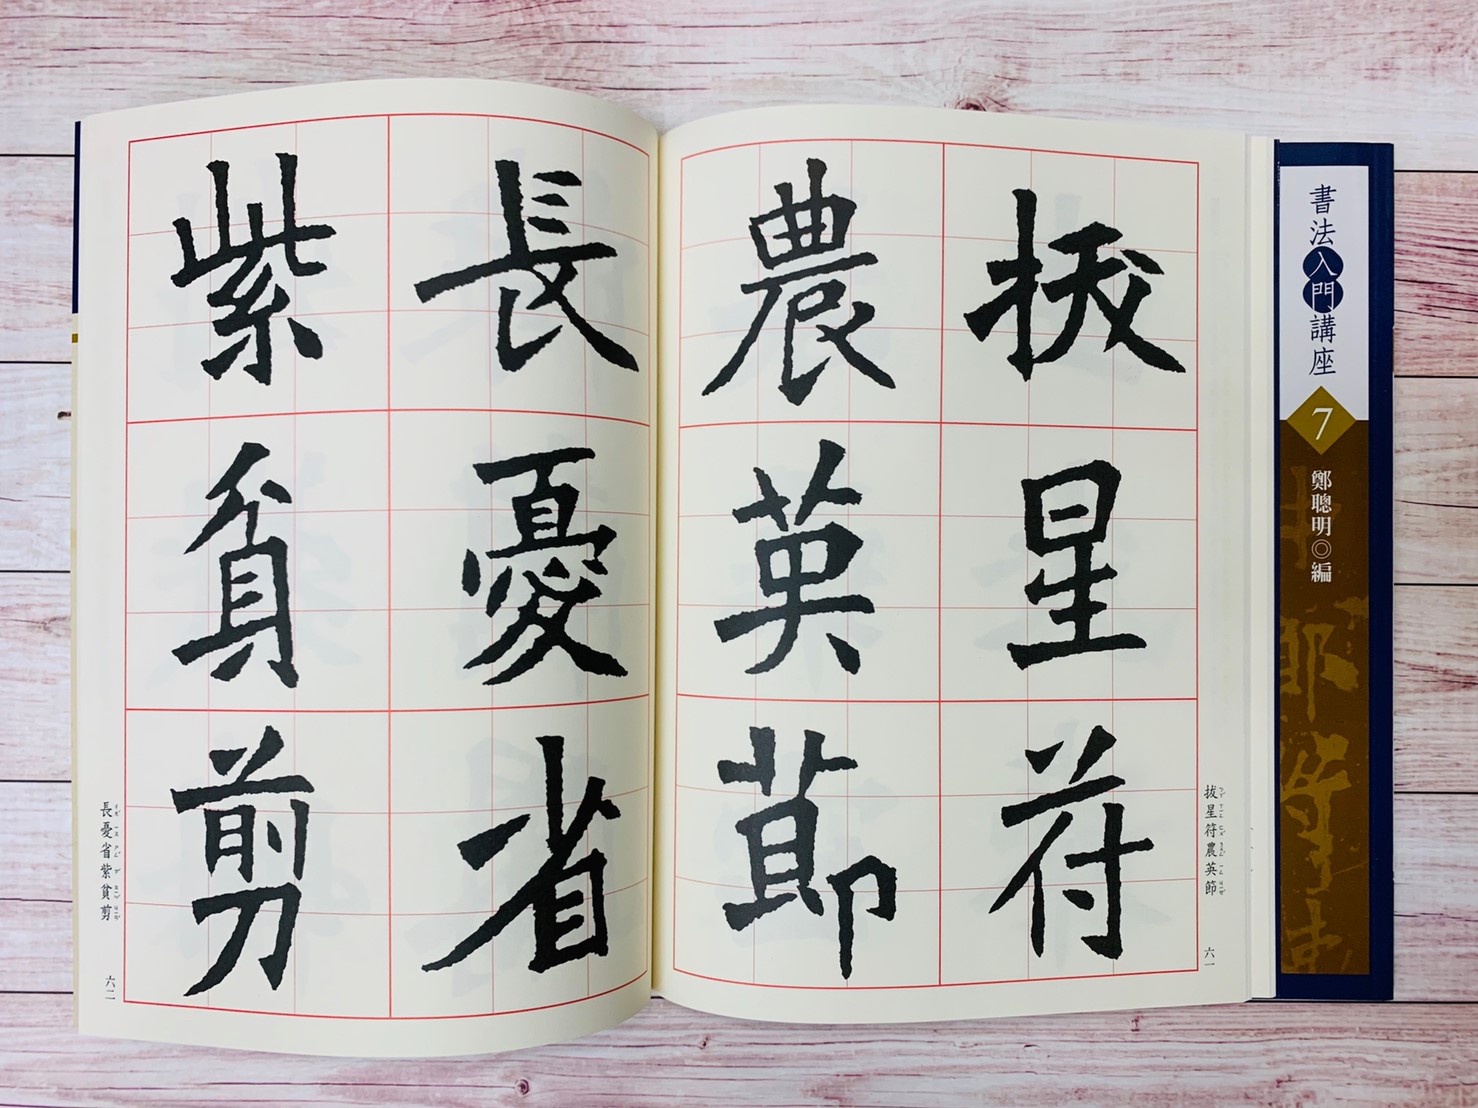 書法入門講座
7
鄭聰明◎編
拔星符
農英節
拔星符農英節
六一
長憂省
紫貧剪
長憂省紫貧剪
六二